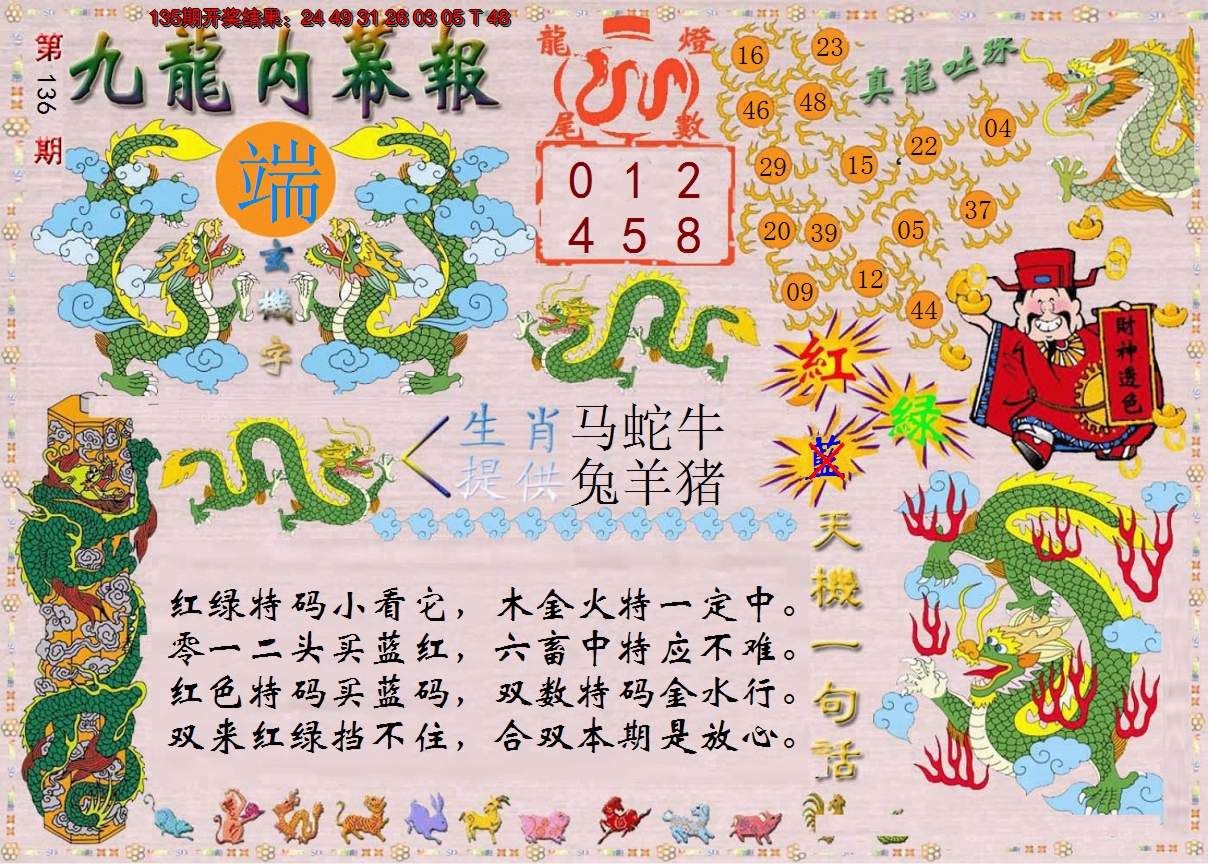 135期开奖结果：24 49 31 26 03 05 T 48
第136期
九龍内幕報
端
玄機字
龍燈尾數
0 1 2
4 5 8
真龍吐珠
16 23
46 48
29 15 22 04
20 39 05 37
09 12 44
財神透色
紅
綠
藍
生肖提供
马蛇牛
兔羊猪
天機一句話
红绿特码小看它，木金火特一定中。
零一二头买蓝红，六畜中特应不难。
红色特码买蓝码，双数特码金水行。
双来红绿挡不住，合双本期是放心。